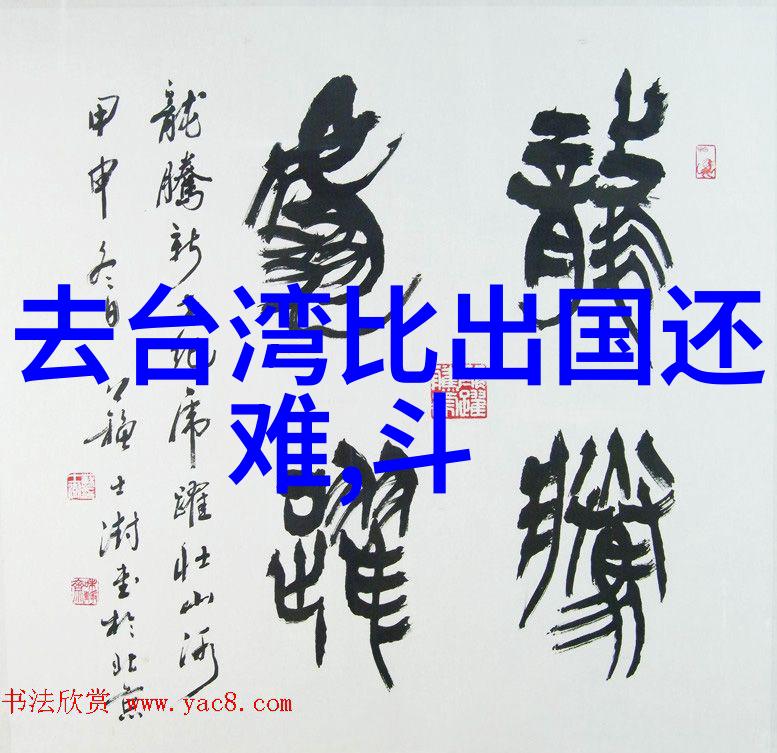 龍騰
虎躍
龍騰新世紀虎躍壯山河
甲申冬日蘇士澍書於北京
去台湾比出国还
难,斗
书法欣赏 www.yac8.com